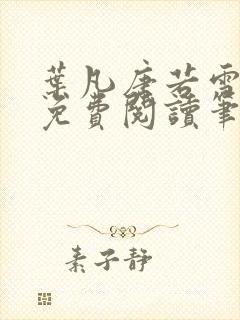 葉凡唐若雪
免費閱讀筆
素子靜